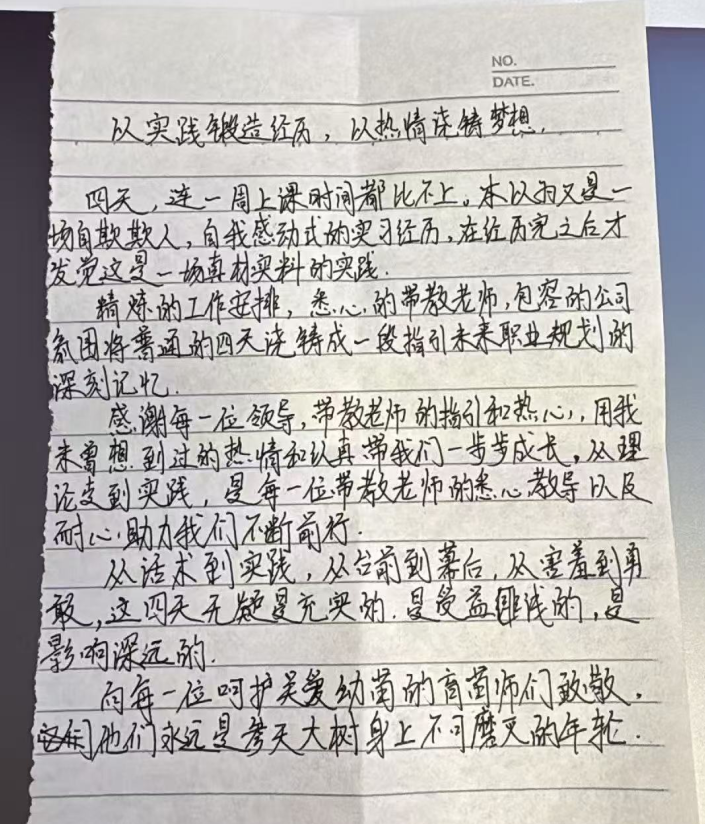 NO.
DATE.
以实践锻造经历，以热情浇铸梦想.
四天，连一周上课时间都比不上。本以为又是一
场自欺欺人，自我感动式的实习经历，在经历完之后才
发觉这是一场真材实料的实践.
精炼的工作安排，悉心的带教老师，包容的公司
氛围将普通的四天浇铸成一段指引未来职业规划的
深刻记忆.
感谢每一位领导，带教老师的指引和热心，用我
未曾想到过的热情和认真带我们一步步成长，从理
论走到实践，是每一位带教老师的悉心教导以及
耐心助力我们不断前行.
从话术到实践，从台前到幕后，从害羞到勇
敢，这四天无疑是充实的.是受益匪浅的，是
影响深远的.
向每一位呵护关爱幼苗的育苗师们致敬。
他们永远是参天大树身上不可磨灭的年轮.